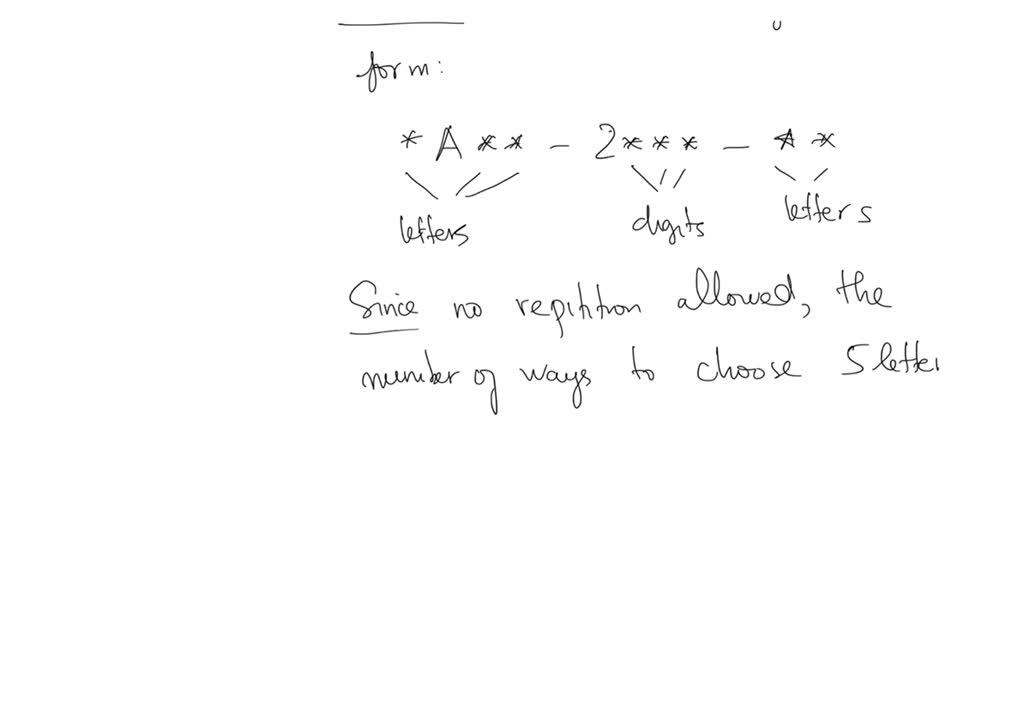 form:
* A * * - 2 * * * - * *
letters digits letters
Since no repitition allowed, the
number of ways to choose 5 letter